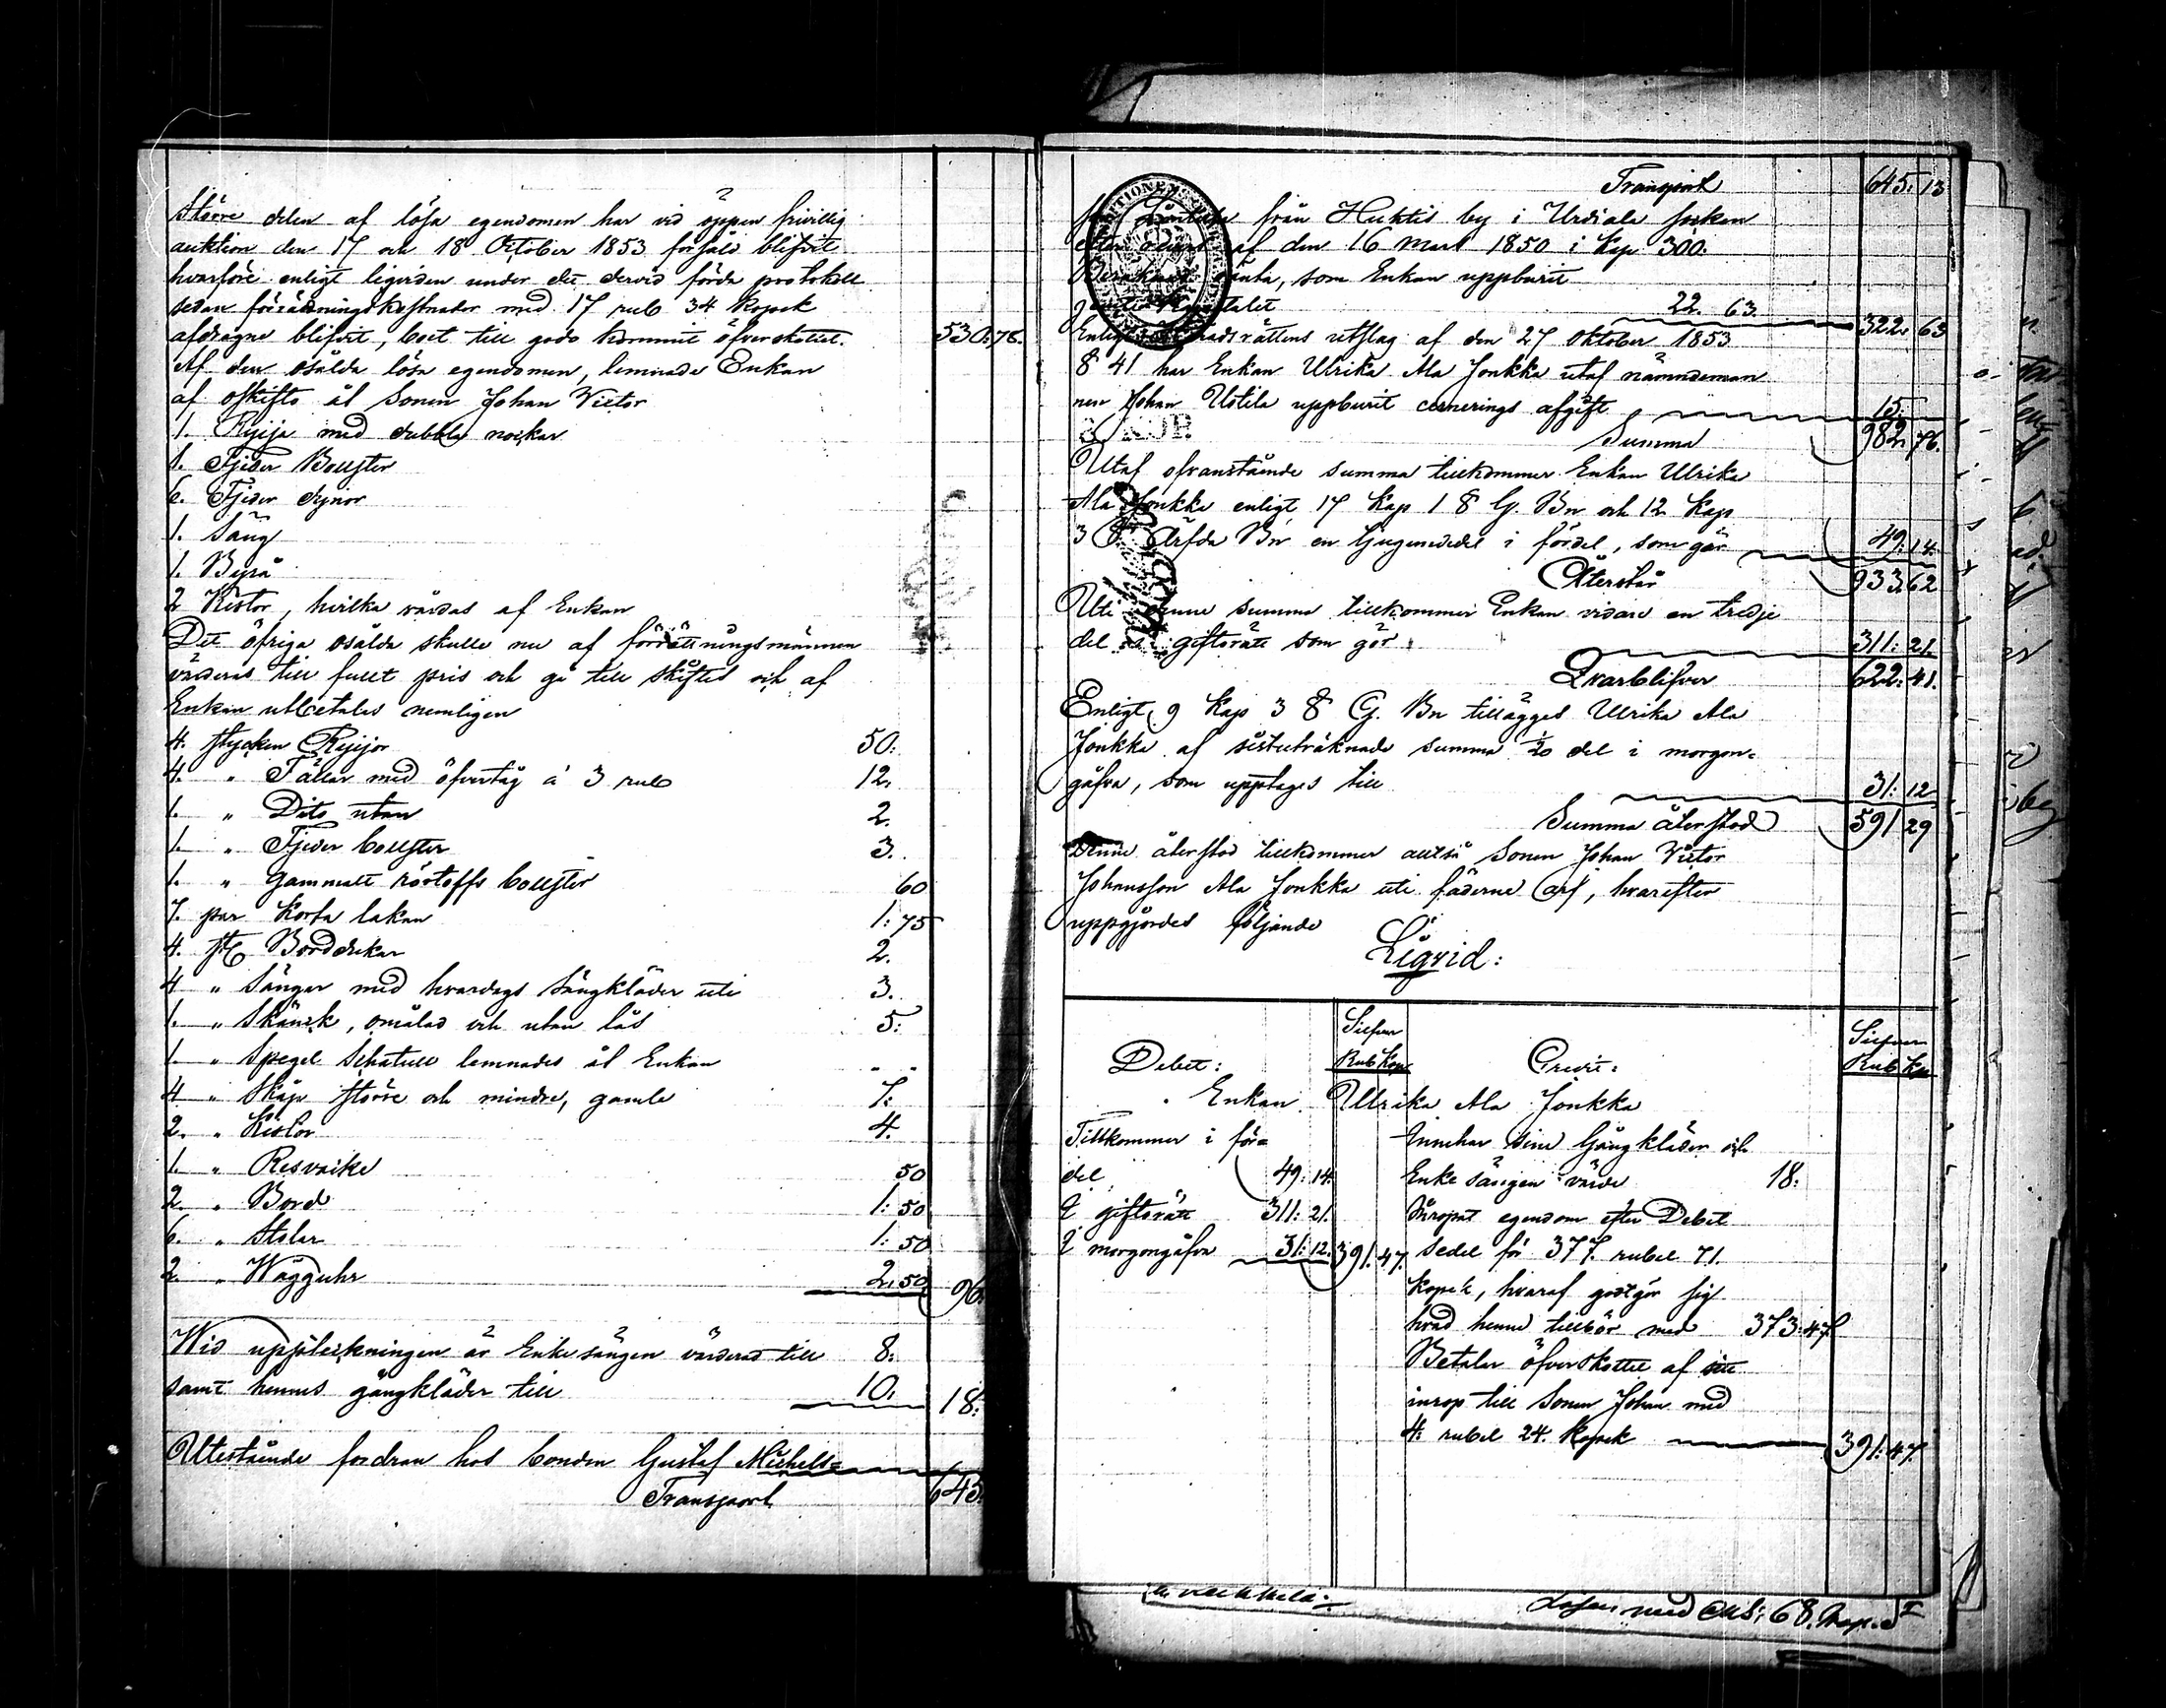 Större delen af lösa egendomen har vid öppen frivillig
auktion den 17 och 18 October 1853 försåld blifvit
hvarföre enligt liqviden under det dervid förda protokoll
sedan förrättningskostnader med 17 rub 34 kopek
afdragne blifvit, boet till godo kommit öfverskottet. 530:78.
Af den osålda lösa egendomen, lemnade Enkan
af oskifto åt Sonen Johan Victor
1. Ryija med dubbla nockar
1. Fjeder Bolster
6. Fjeder dynor
1. Säng
1. Byrå
2 Kistor, hvilka vårdas af Enkan
Det öfriga osålda skulle nu af förrättningsmännen
värderas till fullt pris och gå till skiftes och af
Enkan utbetalas nemligen
4. stycken Ryijor 50:
4. " Fällar med öfvertåg á 3 rub 12.
1. " Dito utan 2.
1. " Fjeder bolster 3.
1. " Gammalt bolster 60
7. par Korta lakan 1:75
4. st Borddukar 2.
4 " Sängar med hvardags Sängkläder uti 3.
1. " Skänk, omålad och utan lås 5:
1. " Spegel Schatull lemnades åt Enkan " "
4 " Skåp större och mindre, gamla 7:
2. " Kistor 4.
1. " 50
2. " Bord 1:50
6. " Stolar 1:50
2. " Wägguhr 2.50 96.
Wid uppteckningen är Enkesängen värderad till 8:
samt hennes gångkläder till 10. 18:
Utestående fordran hos bonden Gustaf Michels=
Transport 645.
Transport 645. 13
från Huktis by i Urdiala socken
af den 16 Mars 1850 i Kap 300.
ränta, som Enkan uppburit
22. 63. 322. 63
rättens utslag af den 27 Oktober 1853
§ 41 har Enkan Ulrika Ala Jonkka utaf nämndeman
nen Johan Uotila uppburit afgift 15.
Summa 982. 76.
Utaf ofvanstående summa tillkommer Enkan Ulrika
Ala Jonkka enligt 17 Kap 1 § G. Bn och 12 Kap
3 § Ärfda Bn en tjugondedel i fördel, som gör 49:14.
Återstår 933.62
Uti denne summa tillkommer Enkan vidare en tredje
del i giftorätt som gör 311:21.
Qvarblifver 622:41.
Enligt 9 Kap 3 § G. Bn tillägges Ulrika Ala
Jonkka af sistuträknade summa 1/20 del i morgon=
gåfva, som upptages till 31:12
Summa återstod 591 29
Denne återstod tillkommer alltså Sonen Johan Victor
Johansson Ala Jonkka uti fäderne Arf, hvarefter
uppgjordes följande
Liqvid:
Debet: Silfver Rub Kop Credit: Silfver Rub Kop
Enkan Ulrika Ala Jonkka
Tillkommer i för=
del 49:14.
I giftorätt 311:21.
I morgongåfva 31:12. 391.47.
Innehar sine Gångkläder och
Enke sängen värde 18:
Inropat egendom efter Debet
sedel för 377. rubel 71.
kopek, hvaraf godtgör sig
hvad henne tillhör med 373:47
Betalar öfverskottet af sitt
inrop till Sonen Johan med
4: rubel 24. Kopek 391:47.